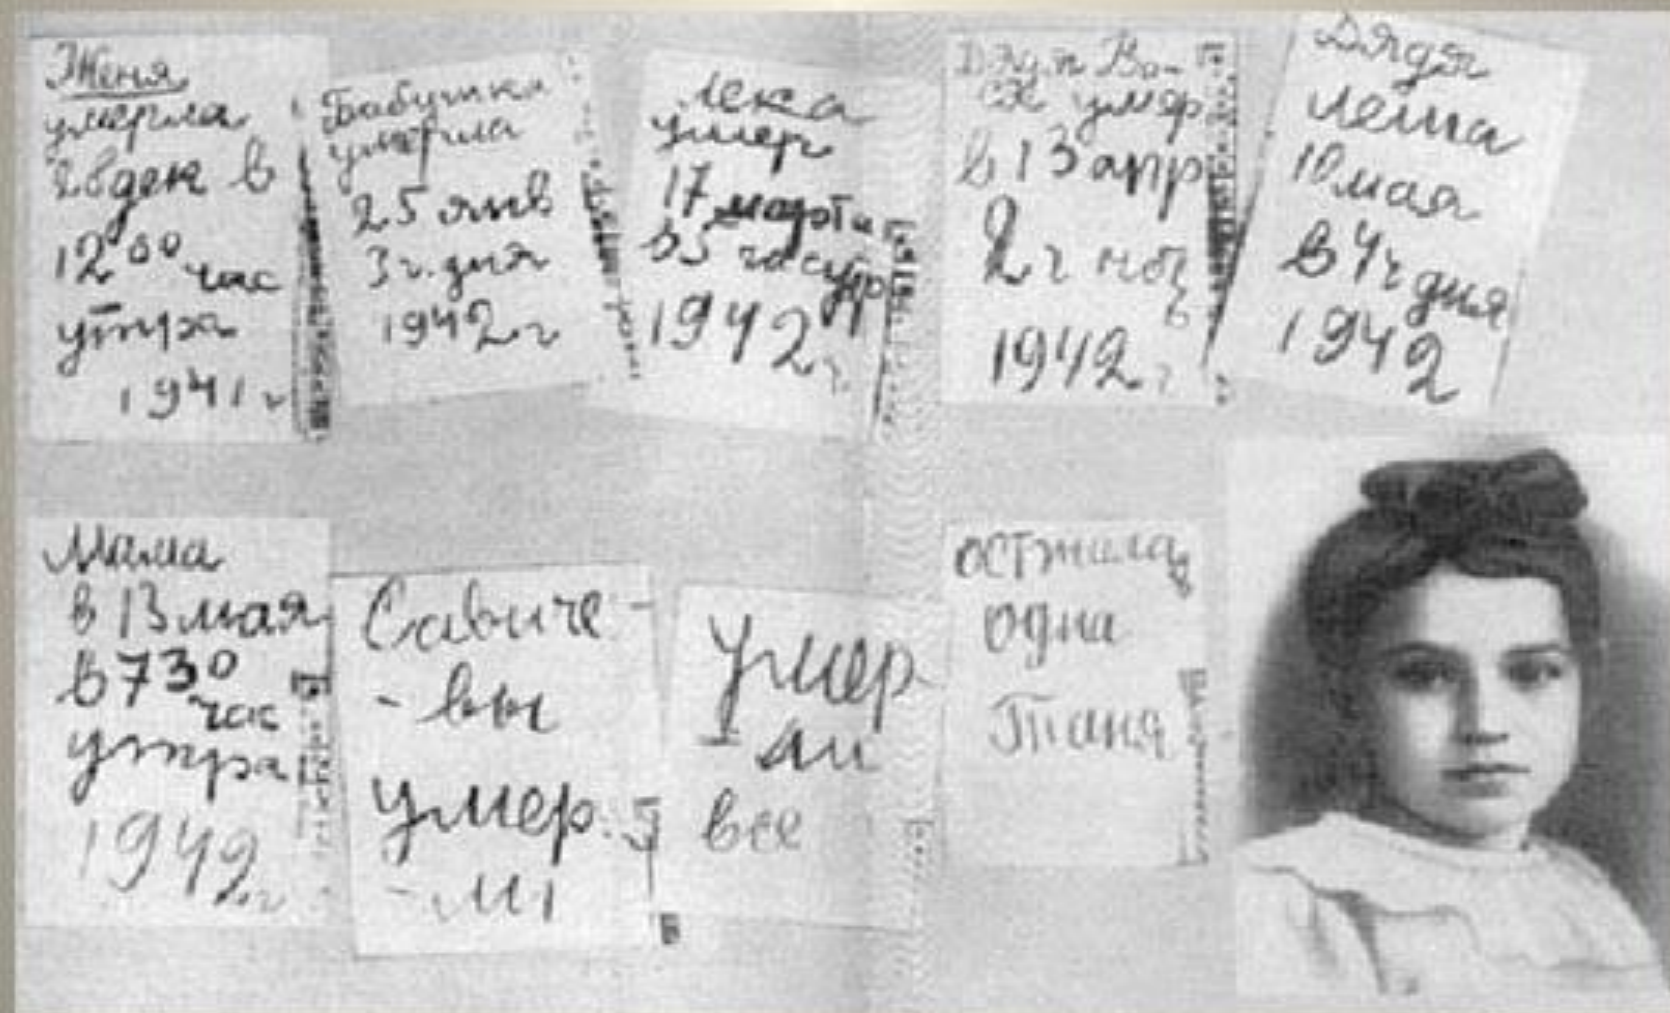 Женя
умерла
28 дек в
12⁰⁰ час
утра
1941 г
Бабушка
умерла
25 янв
3 ч. дня
1942 г
Лека
умер
17 марта
в 5 час утр
1942 г
Дядя Ва-
ся умер
в 13 апр
2 ч ночь
1942 г
Дядя
Леша
10 мая
в 4 ч дня
1942
Мама
в 13 мая
в 7³⁰
час
утра
1942 г
Савиче-
-вы
умер.
-ли
Умер
-ли
все
осталась
одна
Таня